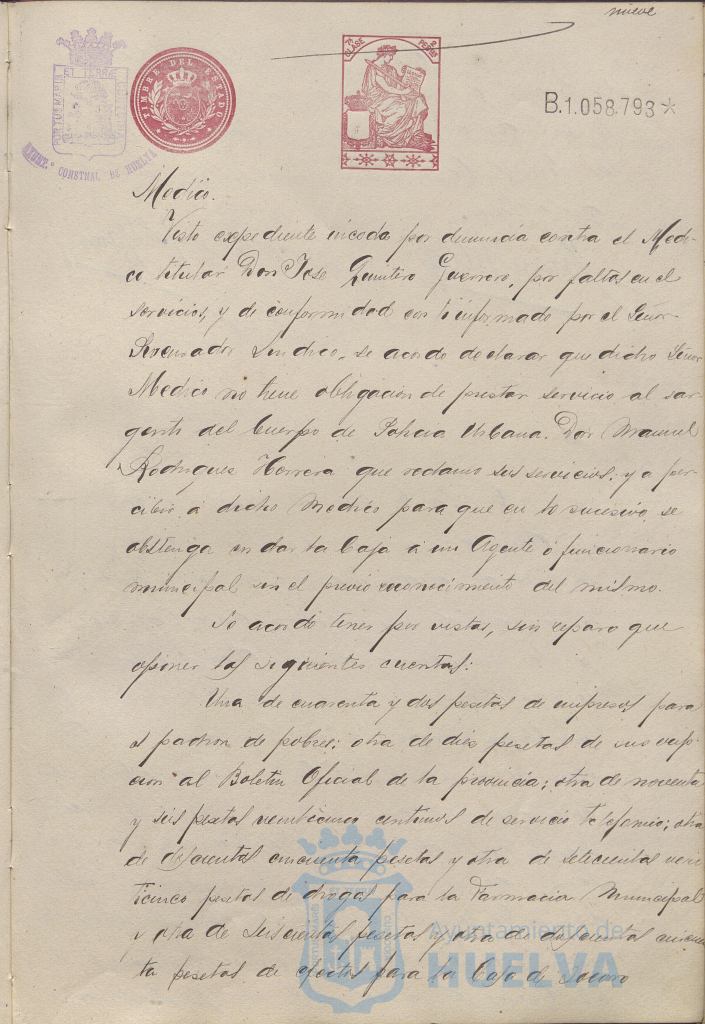 nueve
PORTUS MARIS ET TERRAE CUSTODIA
AYUNT.º CONSTNAL. DE HUELVA
TIMBRE DEL ESTADO
7ª CLASE
2 PTAS
B.1.058.793*
Medico.
Visto expediente incoda por denuncia contra el Medi-
co titular Don Jose Quintero Guerrero, por faltas en el
servicios, y de conformidad con lo informado por el Señor
Procurador Sindico, se acordo declarar que dicho Señor
Medico no tiene obligación de prestar servicio al sar-
gento del Cuerpo de Policia Urbana, Don Manuel
Rodriguez Herrera que reclamo sus servicios; y aper-
cibir á dicho Medico para que en lo sucesivo se
abstenga en dar la baja á un Agente ó funcionario
municipal sin el previo reconocimiento del mismo.
Se acordó tener por vistas, sin reparo que
oponer las siguientes cuentas:
Una de cuarenta y dos pesetas de impresos para
el padron de pobres; otra de diez pesetas de suscrip-
cion al Boletin Oficial de la provincia; otra de noventa
y seis pesetas veinticinco centimos de servicio telefonico; otra
de doscientas cincuenta pesetas y otra de setecientas vein-
ticinco pesetas de drogas para la Farmacia Municipal
y otra de seiscientas pesetas y otra de doscientas cincuen-
ta pesetas de efectos para la Casa de Socorro
Ayuntamiento de
HUELVA